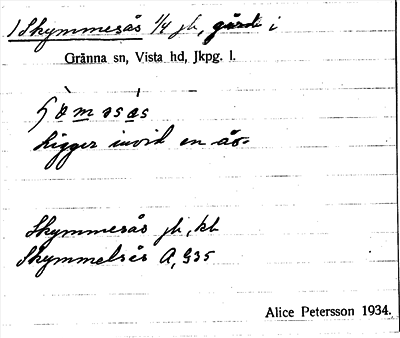 1 Skymmesås 1/4 jb, gård i
Gränna sn, Vista hd, Jkpg. l.
Ligger invid en ås.
Skymmesås jb, kb
Skymmelsås A, G35
Alice Petersson 1934.